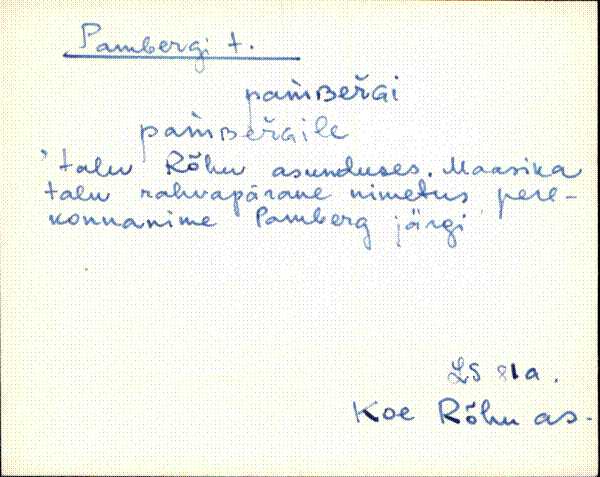 Pambergi t.
pam̀ʙeř́ɢi
pam̀ʙeř́ɢile
' talu Rõhu asunduses. Maasika
talu rahvapärane nimetus pere-
konnanime Pamberg järgi'
LS 81a.
Koe Rõhu as.